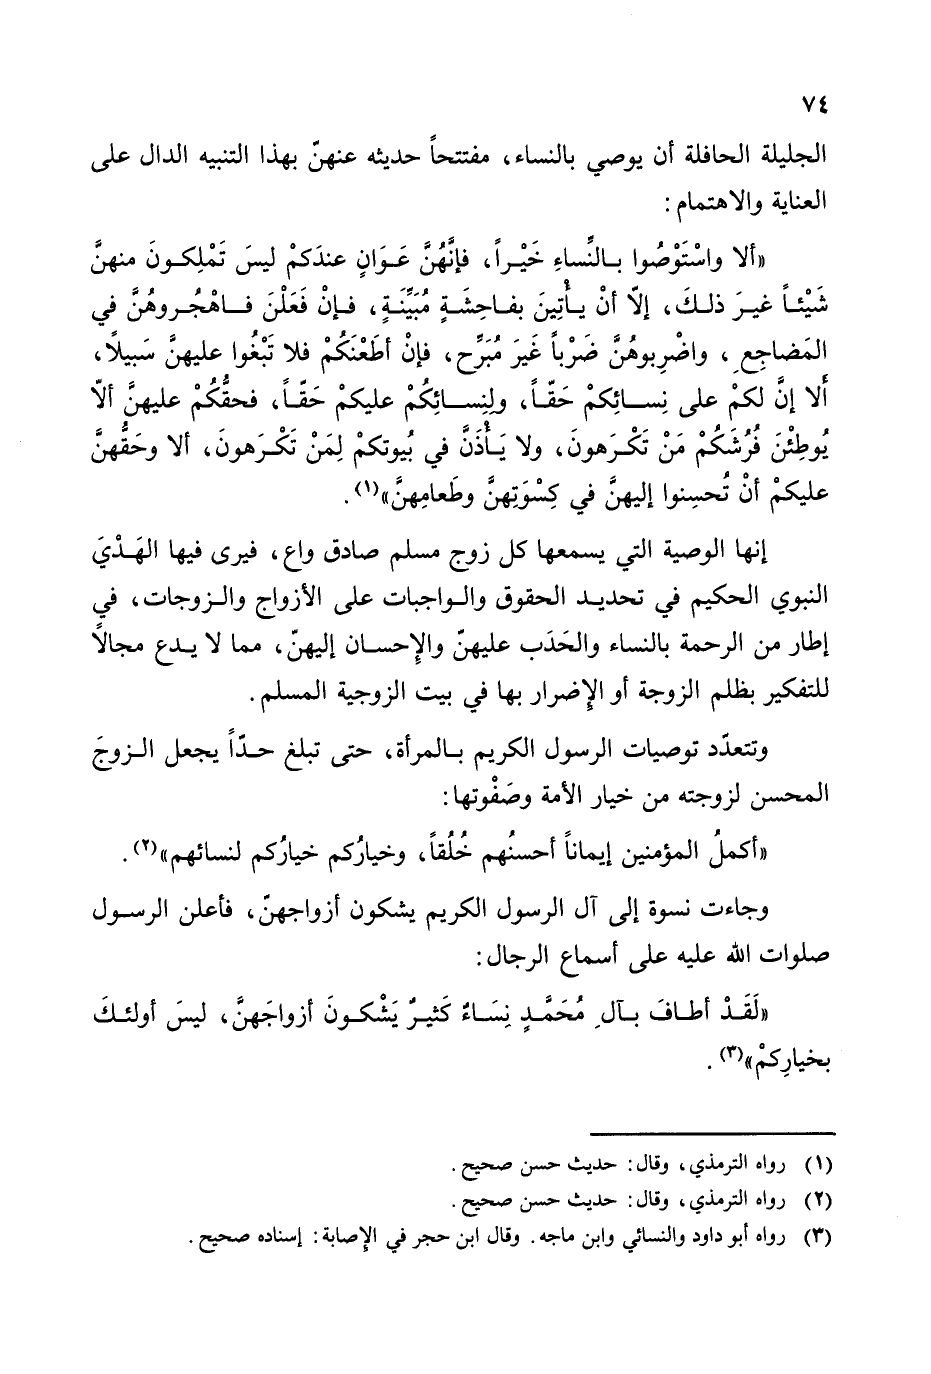 ٧٤
الجليلة الحافلة أن يوصي بالنساء، مفتتحاً حديثه عنهنّ بهذا التنبيه الدال على
العناية والاهتمام:
«ألا واسْتَوْصُوا بـالنِّساءِ خَيْـراً، فإنَّهُنَّ عَـوَانٍ عندَكمْ ليسَ تَمْلِكـونَ منهنَّ
شَيْئـاً غيـرَ ذلـكَ، إلاّ أنْ يـأْتِينَ بفـاحِشَـةٍ مُبَيِّنَـةٍ، فـإنْ فَعَلْنَ فـاهْجُـروهُنَّ في
المَضاجِعِ، واضْرِبوهُنَّ ضَرْباً غَيرَ مُبَرِّحٍ، فإنْ أطَعْنَكُمْ فلا تَبْغُوا عليهنَّ سَبيلاً،
أَلا إنَّ لكمْ على نِســائِكمْ حَقّـاً، ولِنِســائِكُمْ عليكمْ حَقّـاً، فحقُّكُمْ عليهنَّ ألاّ
يُوطِئْنَ فُرُشَكُمْ مَنْ تَكْـرَهونَ، ولا يَـأْذَنَّ في بُيوتكمْ لِمَنْ تَكْـرَهونَ، ألا وحَقُّهنَّ
عليكمْ أنْ تُحسِنوا إليهنَّ في كِسْوَتِهنَّ وطَعامِهنَّ»(١).
إنها الوصية التي يسمعها كل زوج مسلم صادق واع، فيرى فيها الهَدْيَ
النبوي الحكيم في تحديـد الحقوق والـواجبات على الأزواج والـزوجات، في
إطار من الرحمة بالنساء والحَدَب عليهنّ والإحسـان إليهنّ، مما لا يـدع مجالاً
للتفكير بظلم الزوجة أو الإضرار بها في بيت الزوجية المسلم.
وتتعدّد توصيات الرسول الكريم بـالمرأة، حتى تبلغ حـدّاً يجعل الـزوجَ
المحسن لزوجته من خيار الأمة وصَفْوتها:
«أكملُ المؤمنين إيماناً أحسنُهم خُلُقاً، وخيارُكم خيارُكم لنسائهم»(٢).
وجاءت نسوة إلى آل الرسول الكريم يشكون أزواجهنّ، فأعلن الرسـول
صلوات الله عليه على أسماع الرجال:
«لَقَـدْ أطـافَ بـآلِ مُحَمَّـدٍ نِسَـاءٌ كَثيـرٌ يَشْكـونَ أزواجَهنَّ، ليسَ أولئـكَ
بخيارِكمْ»(٣).
(١) رواه الترمذي، وقال: حديث حسن صحيح.
(٢) رواه الترمذي، وقال: حديث حسن صحيح.
(٣) رواه أبو داود والنسائي وابن ماجه. وقال ابن حجر في الإصابة: إسناده صحيح.